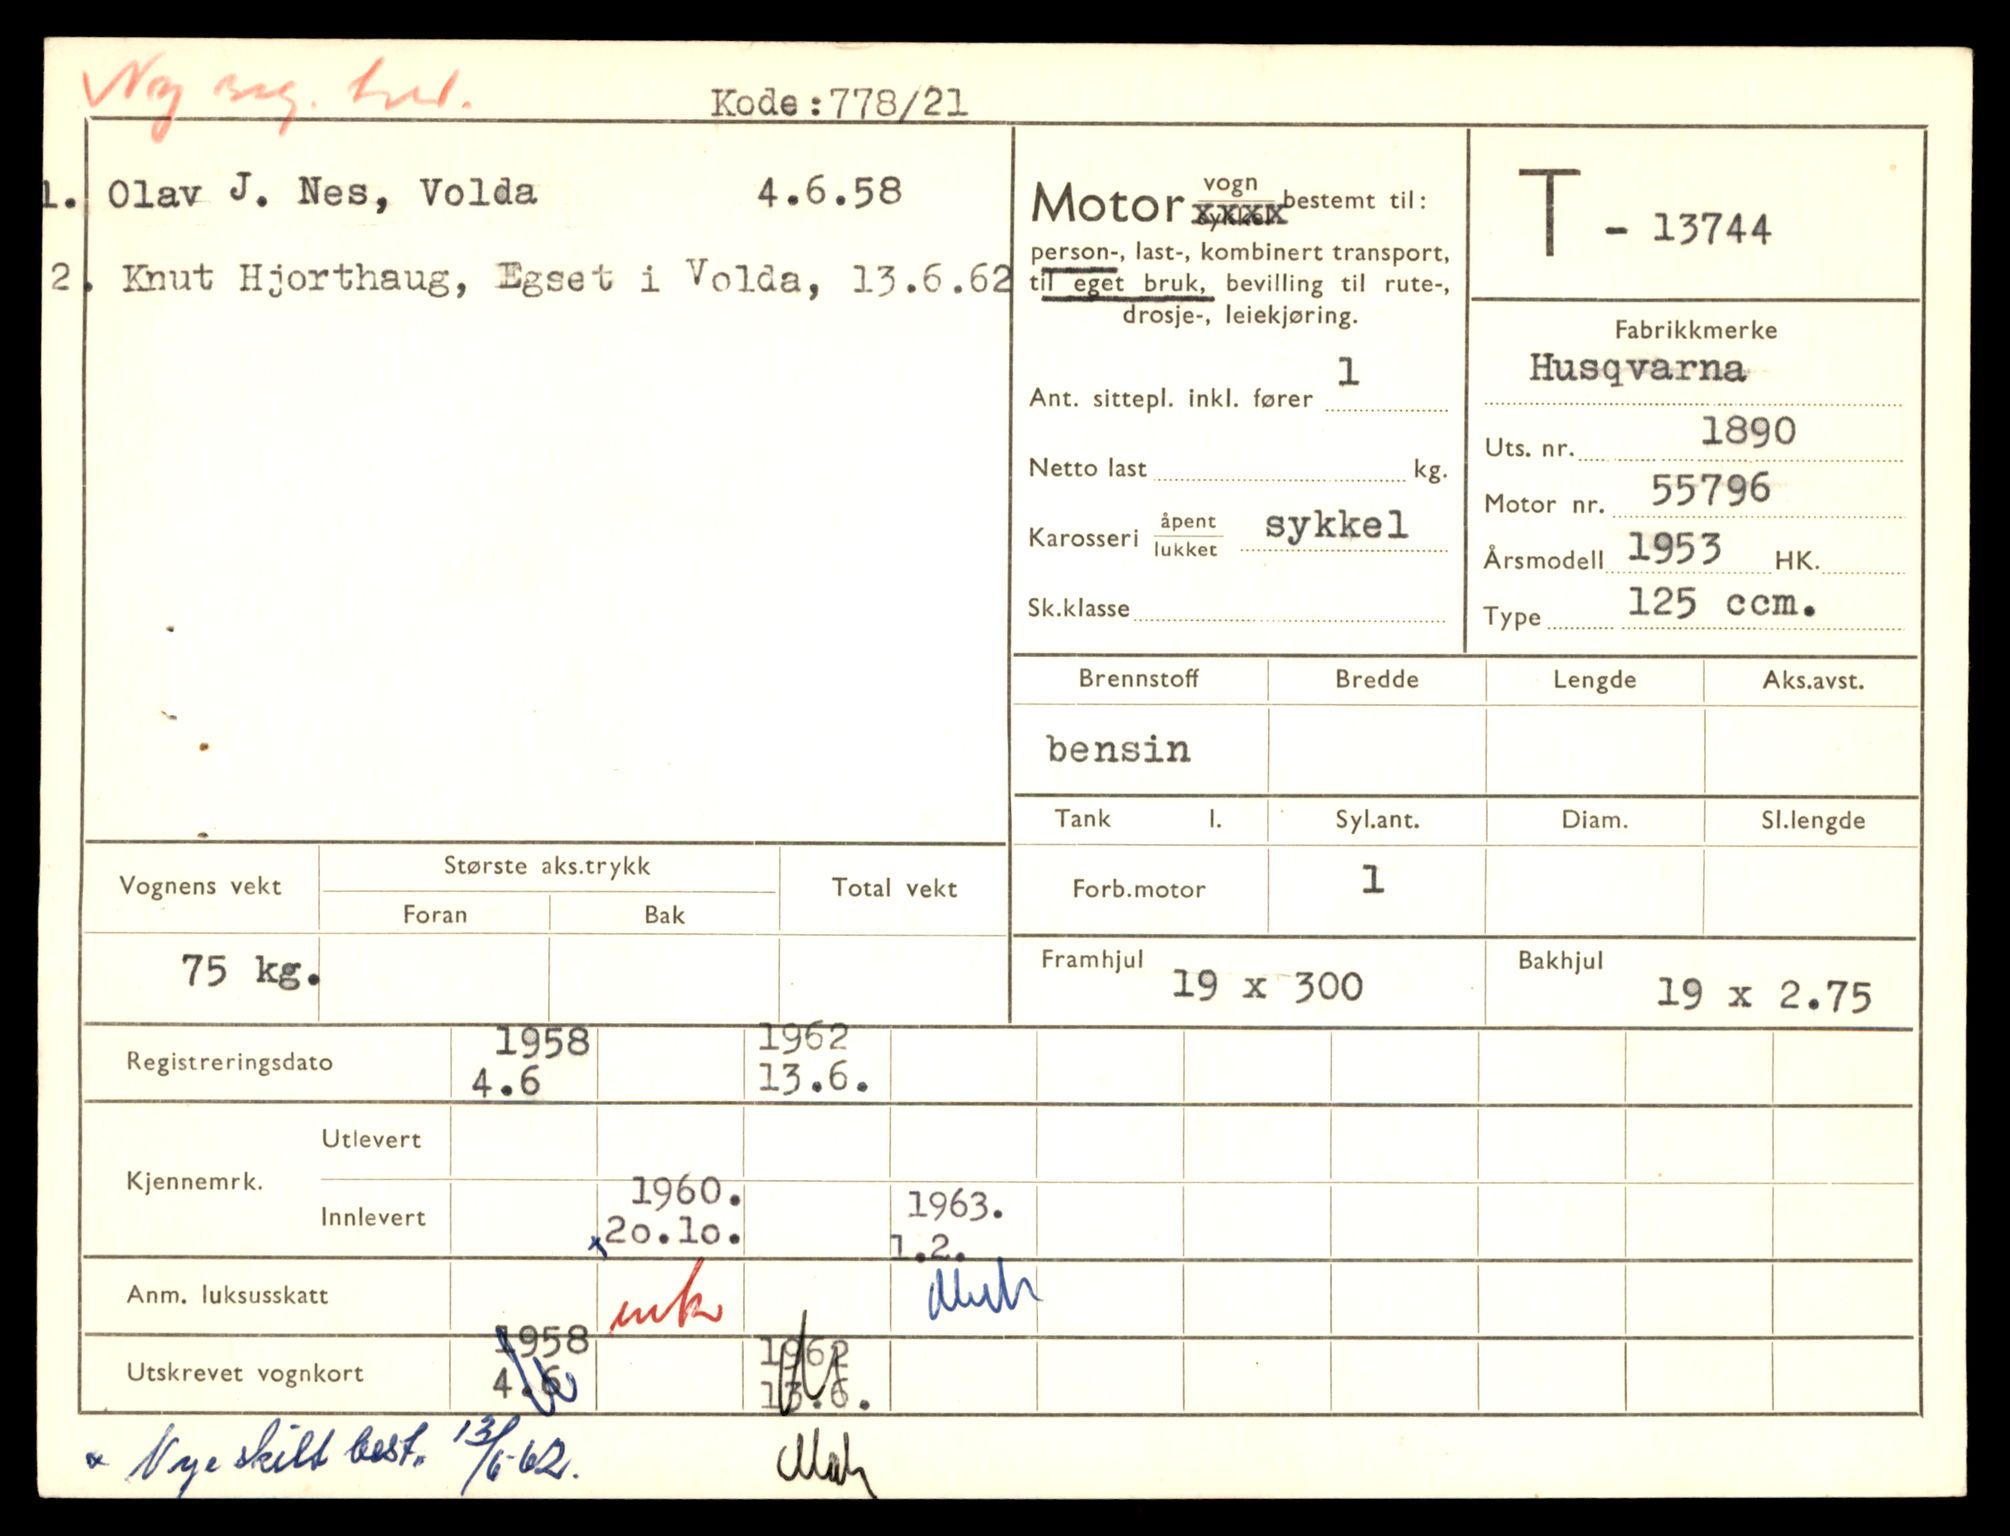 Ny reg.
Kode:778/21
1. Olav J. Nes, Volda 4.6.58
2. Knut Hjorthaug, Egset i Volda, 13.6.62
Motor vogn bestemt til:
person-, last-, kombinert transport,
til eget bruk, bevilling til rute-,
drosje-, leiekjøring.
Ant. sittepl. inkl. fører 1
Netto last kg.
Karosseri åpent lukket sykkel
Sk.klasse
T - 13744
Fabrikkmerke
Husqvarna
Uts. nr. 1890
Motor nr. 55796
Årsmodell 1953 HK.
Type 125 ccm.
Brennstoff Bredde Lengde Aks.avst.
bensin
Tank l. Syl.ant. Diam. Sl.lengde
Forb.motor 1
Framhjul 19 x 300 Bakhjul 19 x 2.75
Vognens vekt Største aks.trykk Total vekt
Foran Bak
75 kg.
Registreringsdato 1958 4.6 1962 13.6.
Kjennemrk. Utlevert
Innlevert 1960. x20.10. 1963. 1.2.
Anm. luksusskatt
Utskrevet vognkort 1958 4.6 1962 13.6.
x Nye skilt best. 13/6-62.